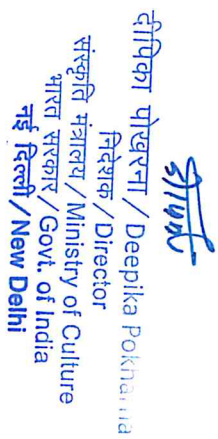 दीपिका पोखरना / Deepika Pokharna
निदेशक / Director
संस्कृति मंत्रालय / Ministry of Culture
भारत सरकार / Govt. of India
नई दिल्ली / New Delhi